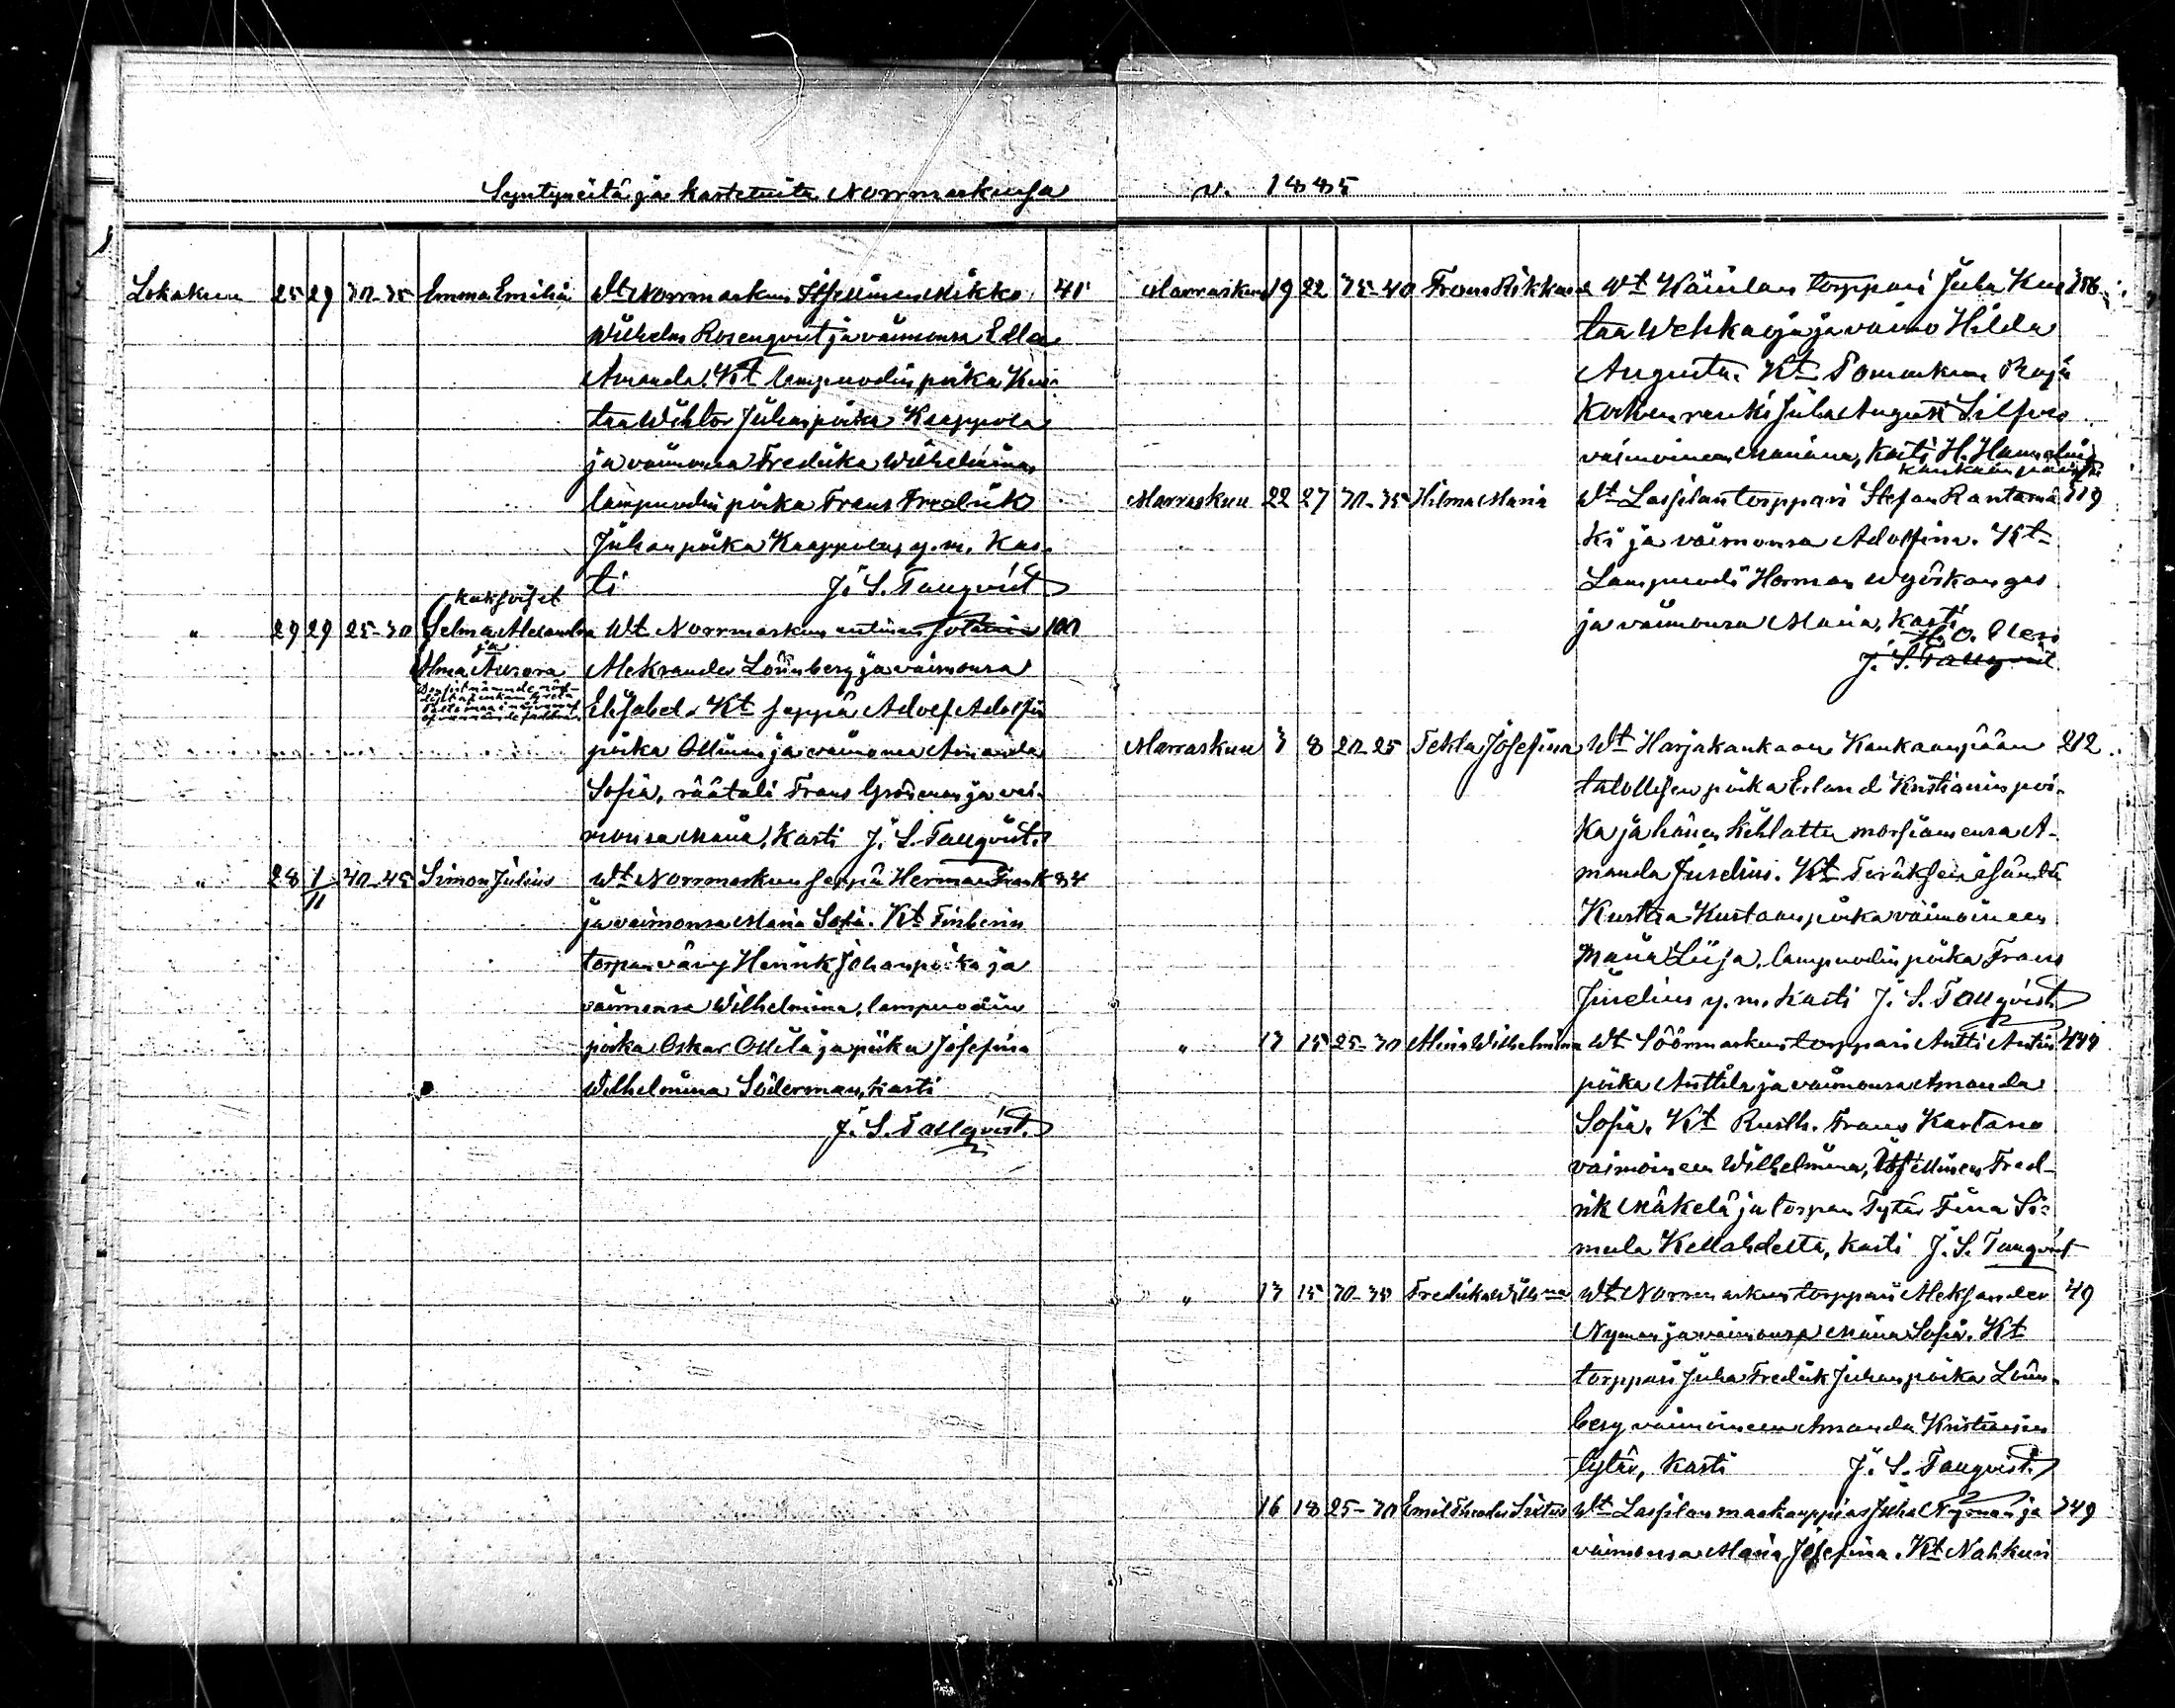 Syntyneitä ja kastetuita Norrmarkussa v. 1885
Lokakuu 25 29 30-35 Emma Emilia Wt Norrmarkun Itsellinen Mikko 41
Wilhelm Rosenqvist ja vaimonsa Edla
Amanda. Kt lampuodin poika Kus-
taa Wihtor Juhanpoika Kaappola
ja vaimonsa Fredrika Wilhelmina,
lampuodin poika Frans Fredrik
Juhanpoika Kaappola, y.m. Kas-
ti J. S. Tallqvist
kaksoiset
" 29 29 25-30 Selma Alexandra Wt Norrmarkun entinen 100
ja
Alma Aurora Aleksander Lönnberg ja vaimonsa
Elisabet. Kt seppä Adolf Adolfin
poika Ollinen ja vaimonsa Amanda
Sofia, räätäli Frans Grönman ja vai-
monsa Maria, Kasti J. S. Tallqvist.
" 28 1/11 40-45 Simon Julius Wt Norrmarkun seppä Herman Frank 84
ja vaimonsa Maria Sofia. Kt
torpan vävy Henrik Johanpoika ja
vaimonsa Wilhelmina, lampuodin
poika Oskar Ollila ja piika Josefina
Wilhelmina Söderman, Kasti
J. S. Tallqvist.
Marraskuu 19 22 35-40 Frans Rikkard Wt Wäinilan torppari Juha Kus-
taa Wehkaoja ja vaimo Hilda
Augusta. Kt Pomarkun
renki Juha August Silfver
vaimoineen Mariana, Kasti H.
Marraskuu 22 27 30-35 Hilma Maria Wt Lassilan torppari Stefan Rantamä- 319
ki ja vaimonsa Adolfina. Kt
Lampuodi Herman Wyöskangas
ja vaimonsa Maria, Kasti
J. S. Tallqvist
Marraskuu 3 8 20-25 Tekla Josefina Wt Harjakankaan Kankaanpään 212
talollisen poika Erland Kristianin poi-
ka ja hänen kihlattu morsiamensa A-
manda Juselius. Kt Teräksen isäntä
Kustaa Kustaanpoika vaimoineen
Maria Liisa, lampuodin poika Frans
Juselius y.m. Kasti J. S. Tallqvist.
" 13 15 25-30 Miina Wilhelmina Wt Söörmarkun torppari Antti Antin
poika Anttila ja vaimonsa Amanda
Sofia. Kt Rusth. Frans Kartano
vaimoineen Wilhelmina, Itsellinen Fred-
rik Mäkelä ja torpan Tytär Fiina Si-
mula Kellahdelta, Kasti J. S. Tallqvist
" 13 15 30-35 Fredrika Wilh:na Wt Norrmarkun torppari Aleksander 49
Nyman ja vaimonsa Maria Sofia. Kt
torppari Juha Fredrik Juhanpoika Lönn-
berg vaimoineen Amanda Kristianin
tytär, Kasti J. S. Tallqvist.
16 18 25-30 Emil Theodor Sixtus Wt Lassilan maakauppias Juha Nyman ja 349
vaimonsa Maria Josefina. Kt Nahkuri